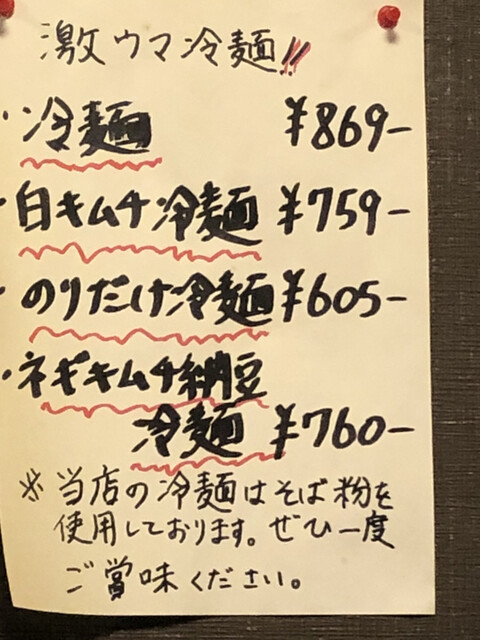 激ウマ冷麺!!
・冷麺 ¥869-
・白キムチ冷麺 ¥759-
・のりだけ冷麺 ¥605-
・ネギキムチ納豆
冷麺 ¥760-
※当店の冷麺はそば粉を
使用しております。ぜひ一度
ご賞味ください。